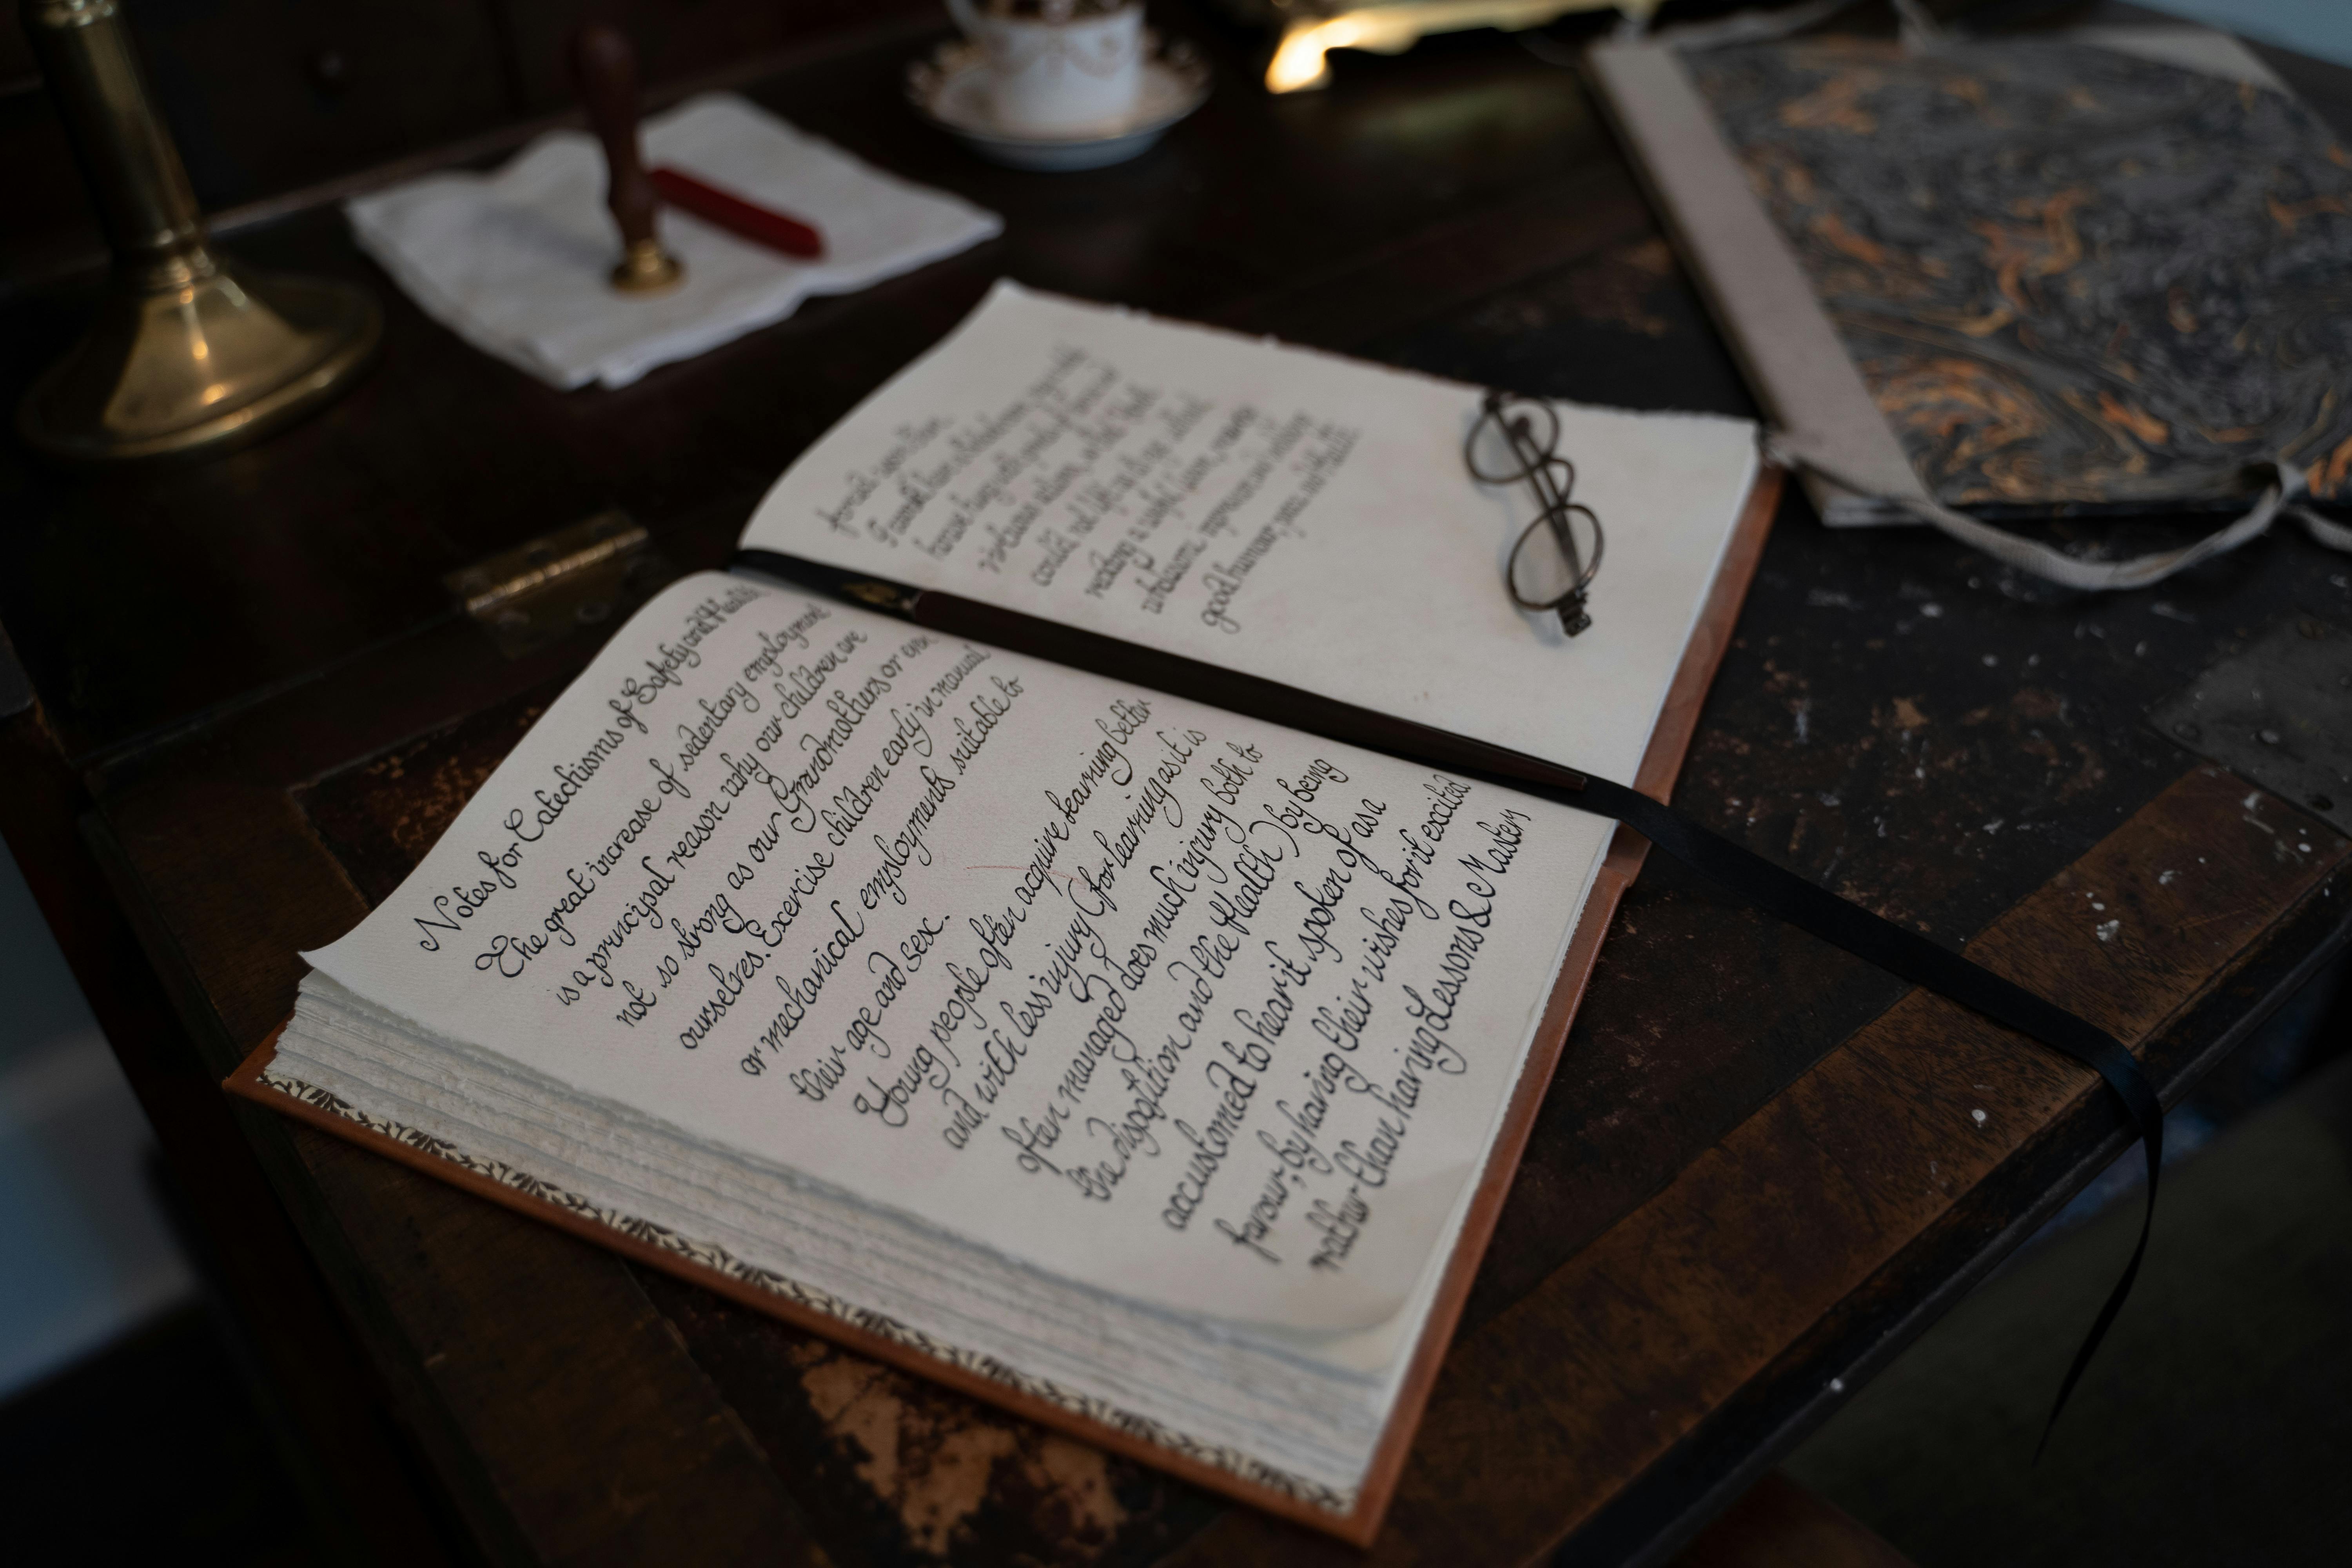 Notes for Catechisms of Safety and Health
The great increase of sedentary employment
is a principal reason why our children are
not so strong as our Grandmothers or even
ourselves. Exercise children early in manual
or mechanical employments suitable to
their age and sex.
Young people often acquire learning better
and with less injury (for learning as it is
often managed does much injury both to
the disposition and the Health) by being
accustomed to hear it spoken of as a
favour, by having their wishes for it excited
rather than having Lessons & Masters
forced upon them
virtuous
could not
making a useful
good humour, you